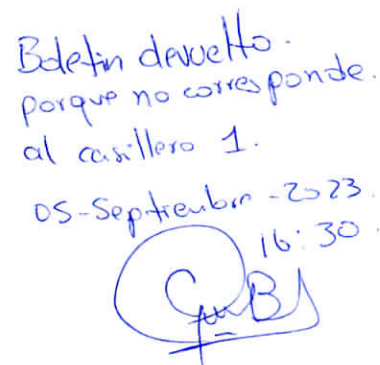 Boletin devuelto.
porque no corresponde.
al casillero 1.
05-Septiembre-2023.
16:30.